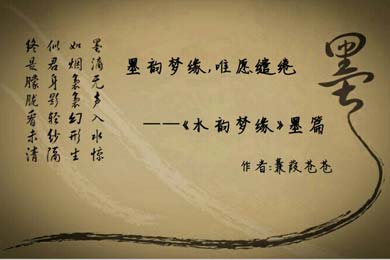 墨滴无声入水惊
如烟袅袅幻形生
似君身影轻纱隔
终是朦胧看未清
墨韵梦缘,唯愿缱绻
——《水韵梦缘》墨篇
作者:蒹葭苍苍
墨